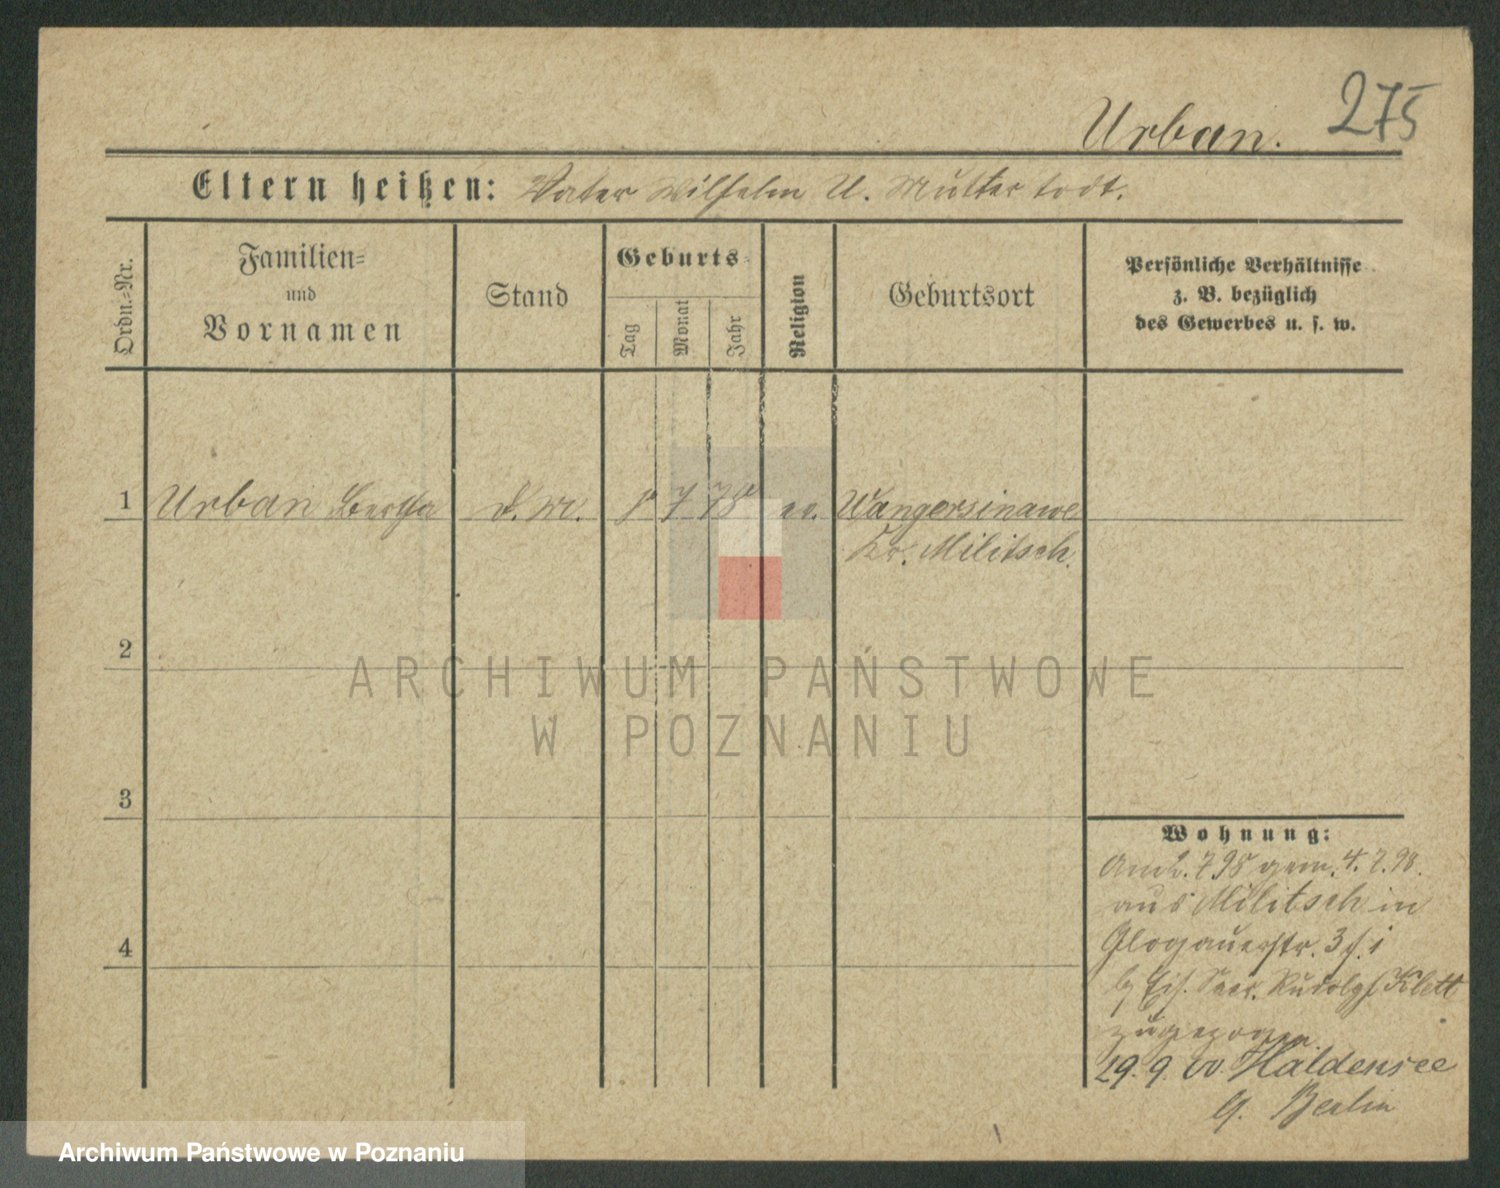 Urban. 275
Eltern heißen: Vater Wilhelm U. Mutter todt.
Ordn.-Nr.
Familien-
und
Vornamen
Stand
Geburts-
Tag
Monat
Jahr
Religion
Geburtsort
Persönliche Verhältnisse
z. B. bezüglich
des Gewerbes u. s. w.
1 Urban Bertha d. m. 8 7 78 ev. Wangersinawe
Kr. Militsch.
2
ARCHIWUM PAŃSTWOWE
W POZNANIU
3
Wohnung:
7.98 gem. 4.7.98.
aus Militsch in
4
Glogauerstr.
Rudolph Klett
zugezogen
29.9.00 Haldensee
Berlin
Archiwum Państwowe w Poznaniu